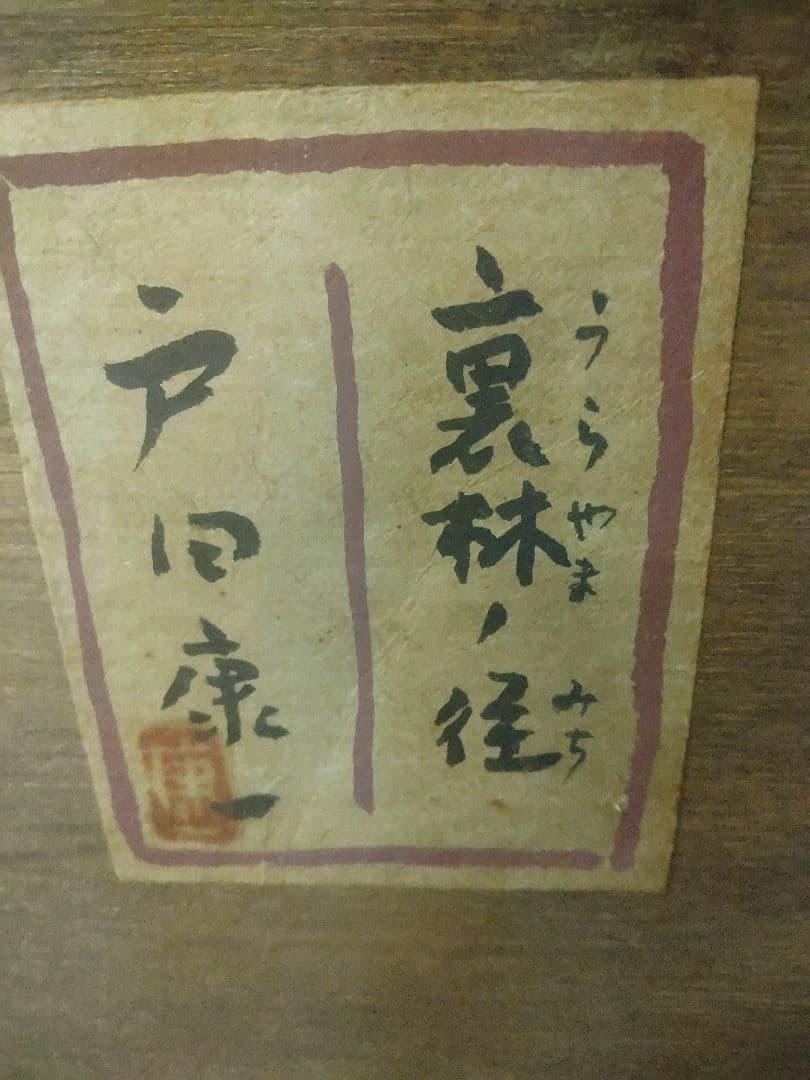 裏林ノ径
うらやま みち
戸田康一